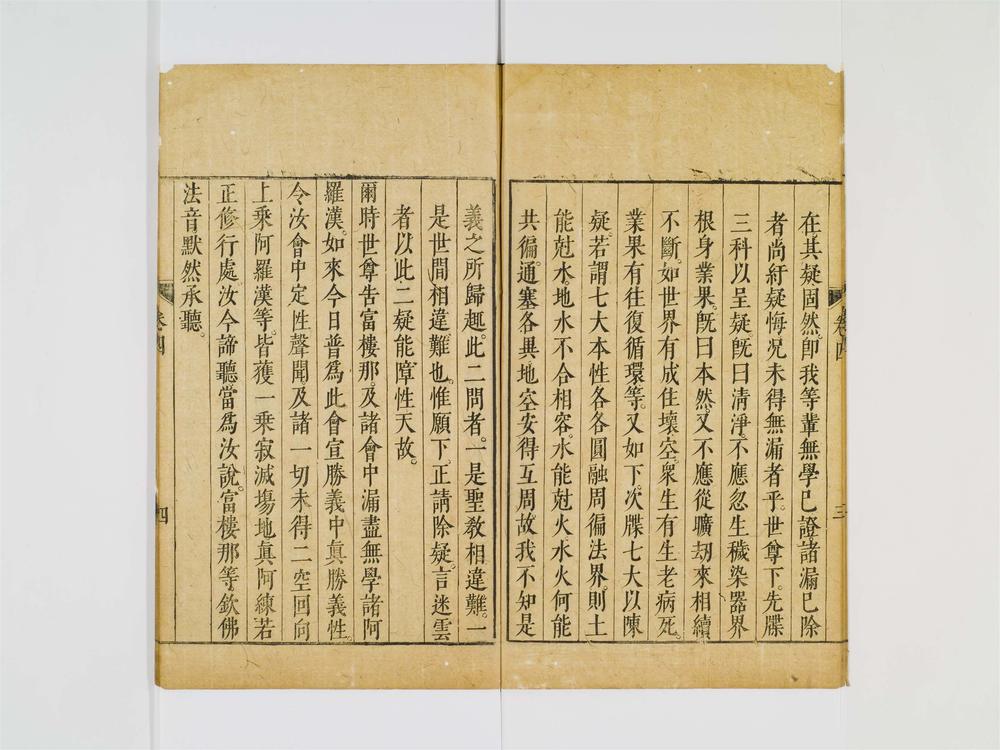 在其疑固然。即我等輩無學已證諸漏已除
者尚紆疑悔况未得無漏者乎。世尊下。先牒
三科以呈疑旣曰清淨。不應忽生穢染器界
根身業果。旣曰本然。又不應從曠劫來相續
不斷。如世界有成住壞空。衆生有生老病死。
業果有往復循環等。又如下。次牒七大以陳
疑。若謂七大本性各各圓融周徧法界。則土
能尅水。地水不合相容。水能尅火水火何能
共徧。通塞各異。地空安得互周。故我不知是
卷四
三
義之所歸趣。此二問者。一是聖敎相違難。一
是世間相違難也。惟願下。正請除疑。言迷雲
者以此二疑能障性天故。
爾時世尊告富樓那。及諸會中漏盡無學諸阿
羅漢。如來今日普爲此會宣勝義中眞勝義性。
令汝會中定性聲聞及諸一切未得二空回向
上乘阿羅漢等。皆獲一乘寂滅塲地眞阿練若
正修行處。汝今諦聽當爲汝說。富樓那等。欽佛
法音默然承聽。
卷四
四